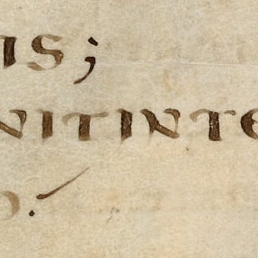 IS;
NITINTE
O.